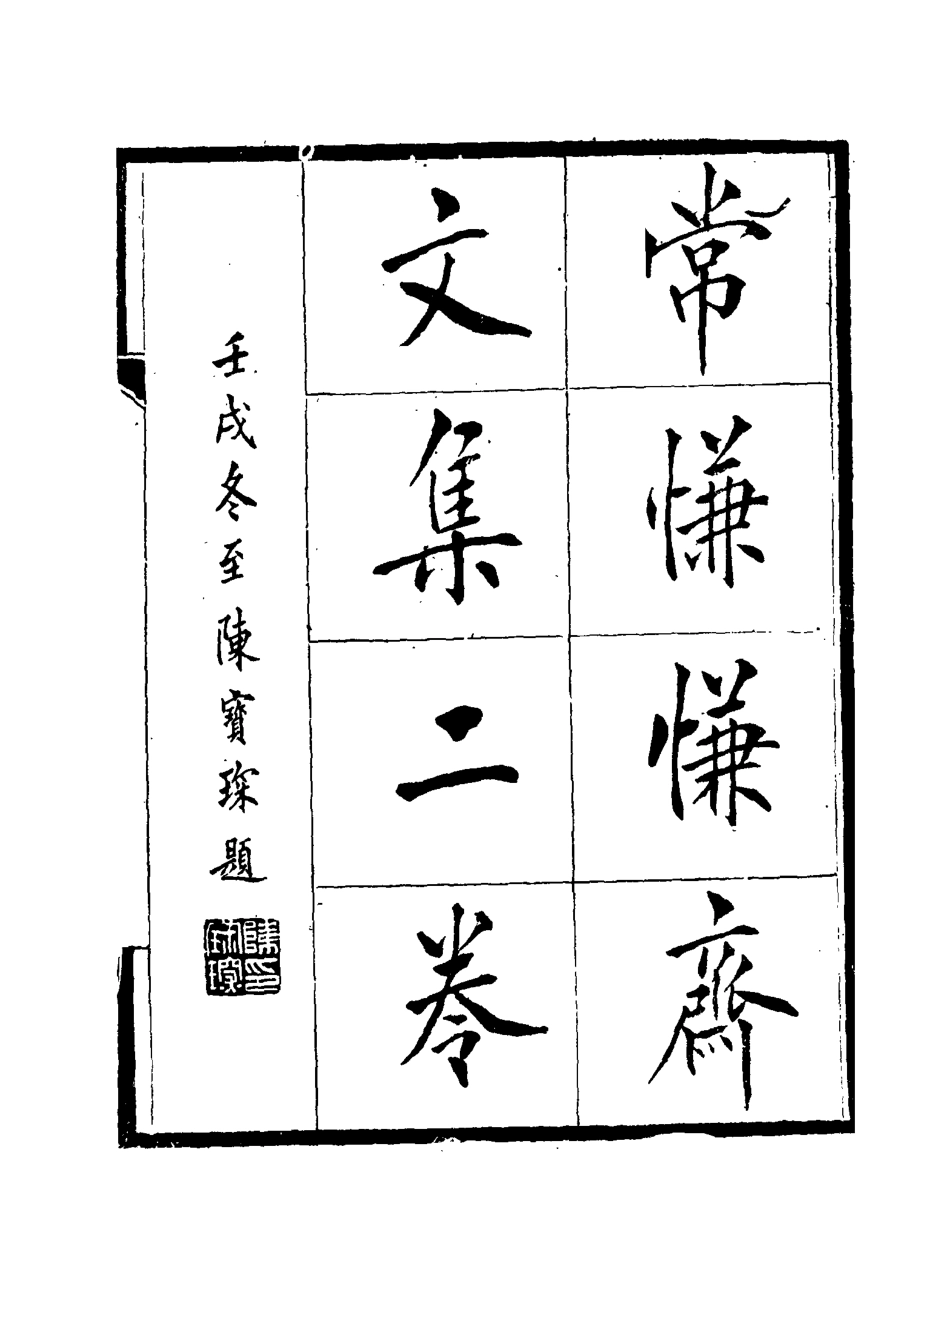 常慊慊齋
文集二卷
壬戌冬至陳寶琛題